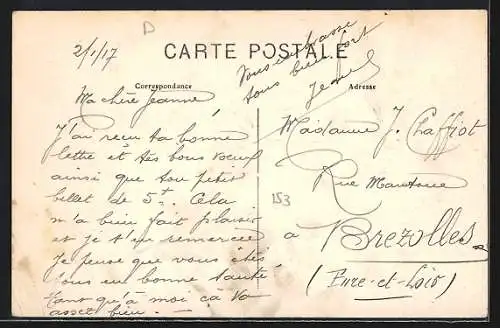 D
2/1/17
CARTE POSTALE
Vous embrasse
tous bien fort
Correspondance
Adresse
Ma chère Jeanne
J'ai reçu ta bonne
lettre et tes bons voeux
ainsi que ton petit
billet de 5f. Cela
m'a bien fait plaisir
et je t'en remercie
Je pense que vous êtes
tous en bonne santé
tant qu'à moi ça va
assez bien.
Madame J. Chaffiot
Rue Mantoue
153
à Brezolles
(Eure-et-Loir)